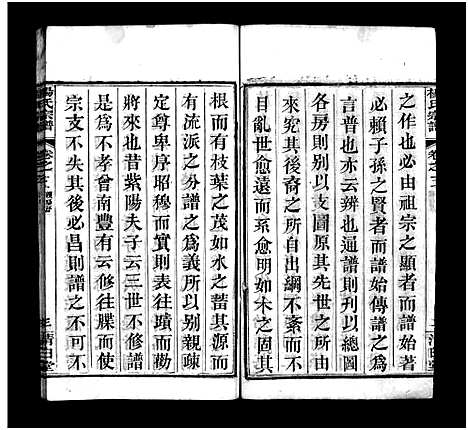 之作也必由祖宗之顯者而譜始作
必賴子孫之賢者而譜始傳譜之
言普也亦云辨也通譜則列以總圖
各房則別以支圖原其先世之所自
來究其後裔之所如綱舉不紊而不
目亂世愈遠而系愈明如木之固其
根而有枝葉之茂如水之蓄其源
有流派之分譜之為義所以別親疎
定尊卑序昭穆而實則表往蹟而勸
將來也昔紫陽夫子云三世不修譜
即為不孝曾南豐有云修往牒而使
宗支不失其後必昌則譜之不可不
楊氏宗譜
卷之
清白堂